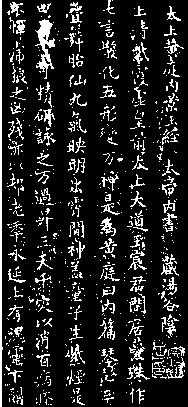 太上黃庭內景玉經 太帝內書 藏湯谷陰
上清紫霞虛皇前太上大道玉晨君閒居蘂珠作
七言散化五形變万神是為黃庭曰內篇琴心三
疊舞胎仙九氣映明出霄間神蓋童子生紫煙是
曰玉書可精研詠之万過昇三天千灾以消百病痊
不憚虎狼之凶殘亦以却老年永延上有魂靈下關